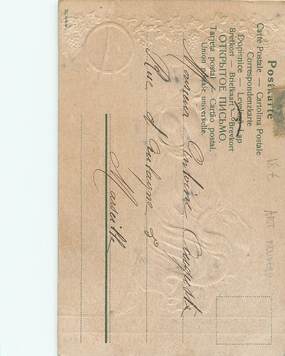 Postkarte
Carte Postale — Cartolina Postale
Correspondenzkarte
Dopisnice — Levelező-Lap
Brefkort — Briefkaart — Brevkort
ОТКРЫТОЕ ПИСЬМО
Tarjeta postal — Cartão postal.
Union postale universelle.
Antoine Auguste
Rue d'Aubagne 3
Marseille